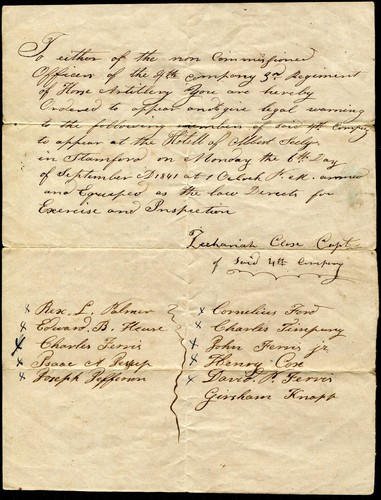 To either of the non Commissioned
Officers of the 4th Company 3rd Regiment
of Horse Artillery You are hereby
Ordered to appear and give legal warning
to the following members of said 4th Compy
to appear at the Hotell of Albert Seely
in Stamford on Monday the 6th Day
of September AD 1841 at 1 Oclock P.M. armed
and Equiped as the law Directs for
Exercise and Inspection
Zechariah Close Capt
of Said 4th Company
x Rex. L. Palmer
x Edward. B. Heuse
x Charles Ferris
x Isaac A
x Joseph Jefferson
x Cornelius Ford
x Charles Timpany
x John Ferris jr
x Henry Cox
x David. P. Ferris
Girsham Knapp